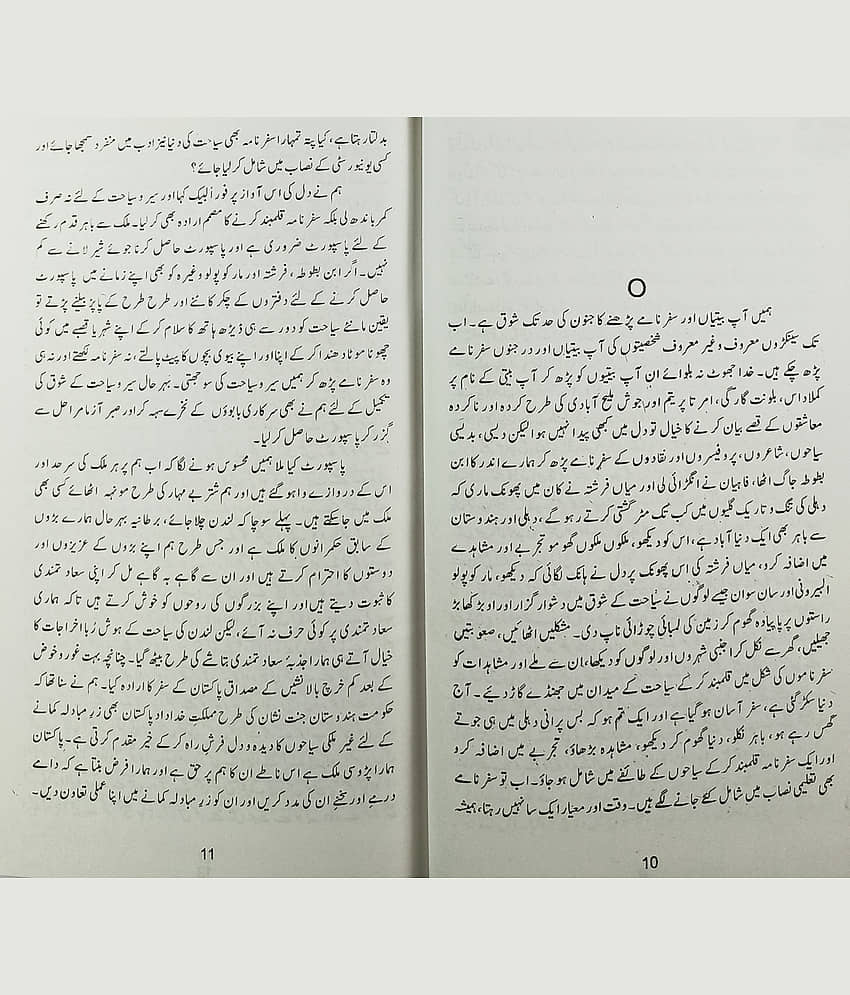 O
ہمیں آپ بیتیاں اور سفر نامے پڑھنے کا جنون کی حد تک شوق ہے۔ اب
تک سینکڑوں معروف وغیر معروف شخصیتوں کی آپ بیتیاں اور درجنوں سفر نامے
پڑھ چکے ہیں۔ خدا جھوٹ نہ بلوائے ان آپ بیتیوں کو پڑھ کر آپ بیتی کے نام پر
کملا داس، بلونت گارگی، امرتا پریتم اور جوش ملیح آبادی کی طرح کردہ اور ناکردہ
معاشقوں کے قصے بیان کرنے کا خیال تو دل میں کبھی پیدا نہیں ہوا لیکن دیسی، بدیسی
سیاحوں، شاعروں، پروفیسروں اور نقادوں کے سفر نامے پڑھ کر ہمارے اندر کا ابن
بطوطہ جاگ اٹھا، فاہیان نے انگڑائی لی اور میاں فرشتہ نے کان میں پھونک ماری کہ
دہلی کی تنگ و تاریک گلیوں میں کب تک مٹر گشتی کرتے رہو گے، دہلی اور ہندوستان
سے باہر بھی ایک دنیا آباد ہے، اس کو دیکھو، ملکوں ملکوں گھومو تجربے اور مشاہدے
میں اضافہ کرو، میاں فرشتہ کی اس پھونک پر دل نے ہانک لگائی کہ دیکھو، مارکوپولو
البیرونی اور سان سوان جیسے لوگوں نے سیاحت کے شوق میں دشوار گزار اور اوبڑ کھابڑ
راستوں پر پا پیادہ گھوم کر زمین کی لمبائی چوڑائی ناپ دی۔ مشکلیں اٹھائیں، صعوبتیں
جھیلیں، گھر سے نکل کر اجنبی شہروں اور لوگوں کو دیکھا، ان سے ملے اور مشاہدات کو
سفر ناموں کی شکل میں قلمبند کر کے سیاحت کے میدان میں جھنڈے گاڑ دیئے۔ آج
دنیا سکڑ گئی ہے، سفر آسان ہو گیا ہے اور ایک تم ہو کہ بس پرانی دہلی میں ہی جوتے
گھس رہے ہو، باہر نکلو، دنیا گھوم کر دیکھو، مشاہدہ بڑھاؤ، تجربے میں اضافہ کرو
اور ایک سفر نامہ قلمبند کر کے سیاحوں کے طائفے میں شامل ہو جاؤ۔ اب تو سفر نامے
بھی تعلیمی نصاب میں شامل کئے جانے لگے ہیں۔ وقت اور معیار ایک سا نہیں رہتا، ہمیشہ
10
بدلتا رہتا ہے، کیا پتہ تمہارا سفر نامہ بھی سیاحت کی دنیا نیز ادب میں منفرد سمجھا جائے اور
کسی یونیورسٹی کے نصاب میں شامل کر لیا جائے؟
ہم نے دل کی اس آواز پر فوراً لبیک کہا اور سیر و سیاحت کے لئے نہ صرف
کمر باندھ لی بلکہ سفر نامہ قلمبند کرنے کا مصمم ارادہ بھی کر لیا۔ ملک سے باہر قدم رکھنے
کے لئے پاسپورٹ ضروری ہے اور پاسپورٹ حاصل کرنا جوئے شیر لانے سے کم
نہیں۔ اگر ابن بطوطہ، فرشتہ اور مارکوپولو وغیرہ کو بھی اپنے زمانے میں پاسپورٹ
حاصل کرنے کے لئے دفتروں کے چکر کاٹنے اور طرح طرح کے پاپڑ بیلنے پڑتے تو
یقین مانئے سیاحت کو دور سے ہی ڈیڑھ ہاتھ کا سلام کر کے اپنے شہر یا قصبے میں کوئی
چھوٹا موٹا دھندا کر کے اپنا اور اپنے بیوی بچوں کا پیٹ پالتے، نہ سفر نامہ لکھتے اور نہ ہی
وہ سفر نامے پڑھ کر ہمیں سیر و سیاحت کی سوجھتی۔ بہر حال سیر و سیاحت کے شوق کی
تکمیل کے لئے ہم نے بھی سرکاری بابوؤں کے نخرے سہہ کر اور صبر آزما مراحل سے
گزر کر پاسپورٹ حاصل کر لیا۔
پاسپورٹ کیا ملا ہمیں محسوس ہونے لگا کہ اب ہم پر ہر ملک کی سرحد اور
اس کے دروازے وا ہو گئے ہیں اور ہم شتر بے مہار کی طرح مونہہ اٹھائے کسی بھی
ملک میں جا سکتے ہیں۔ پہلے سوچا کہ لندن چلا جائے، برطانیہ بہر حال ہمارے بڑوں
کے سابق حکمرانوں کا ملک ہے اور جس طرح ہم اپنے بڑوں کے عزیزوں اور
دوستوں کا احترام کرتے ہیں اور ان سے گاہے بہ گاہے مل کر اپنی سعادتمندی
کا ثبوت دیتے ہیں اور اپنے بزرگوں کی روحوں کو خوش کرتے ہیں تا کہ ہماری
سعادتمندی پر کوئی حرف نہ آئے، لیکن لندن کی سیاحت کے ہوش رُبا اخراجات کا
خیال آتے ہی ہمارا جذبۂ سعادتمندی بتاشے کی طرح بیٹھ گیا۔ چنانچہ بہت غور و خوض
کے بعد کم خرچ بالا نشیں کے مصداق پاکستان کے سفر کا ارادہ کیا۔ ہم نے سنا تھا کہ
حکومت ہندوستان جنت نشان کی طرح مملکتِ خداداد پاکستان بھی زرِ مبادلہ کمانے
کے لئے غیر ملکی سیاحوں کا دیدہ و دل فرشِ راہ کر کے خیر مقدم کرتی ہے۔ پاکستان
ہمارا پڑوسی ملک ہے اس ناطے ان کا ہم پر حق ہے اور ہمارا فرض بنتا ہے کہ دامے
درمے اور سخنے ان کی مدد کریں اور ان کو زرِ مبادلہ کمانے میں اپنا عملی تعاون دیں۔
11